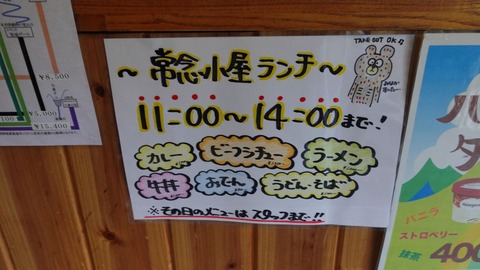 TAKE OUT OK♪
～常念小屋ランチ～
11:00～14:00まで!
カレー
ビーフシチュー
ラーメン
牛丼
おでん
うどん・そば
※その日のメニューはスタッフまで!!
¥8,500
¥5,000
100
¥15,400
バニラ
ストロベリー
抹茶
400